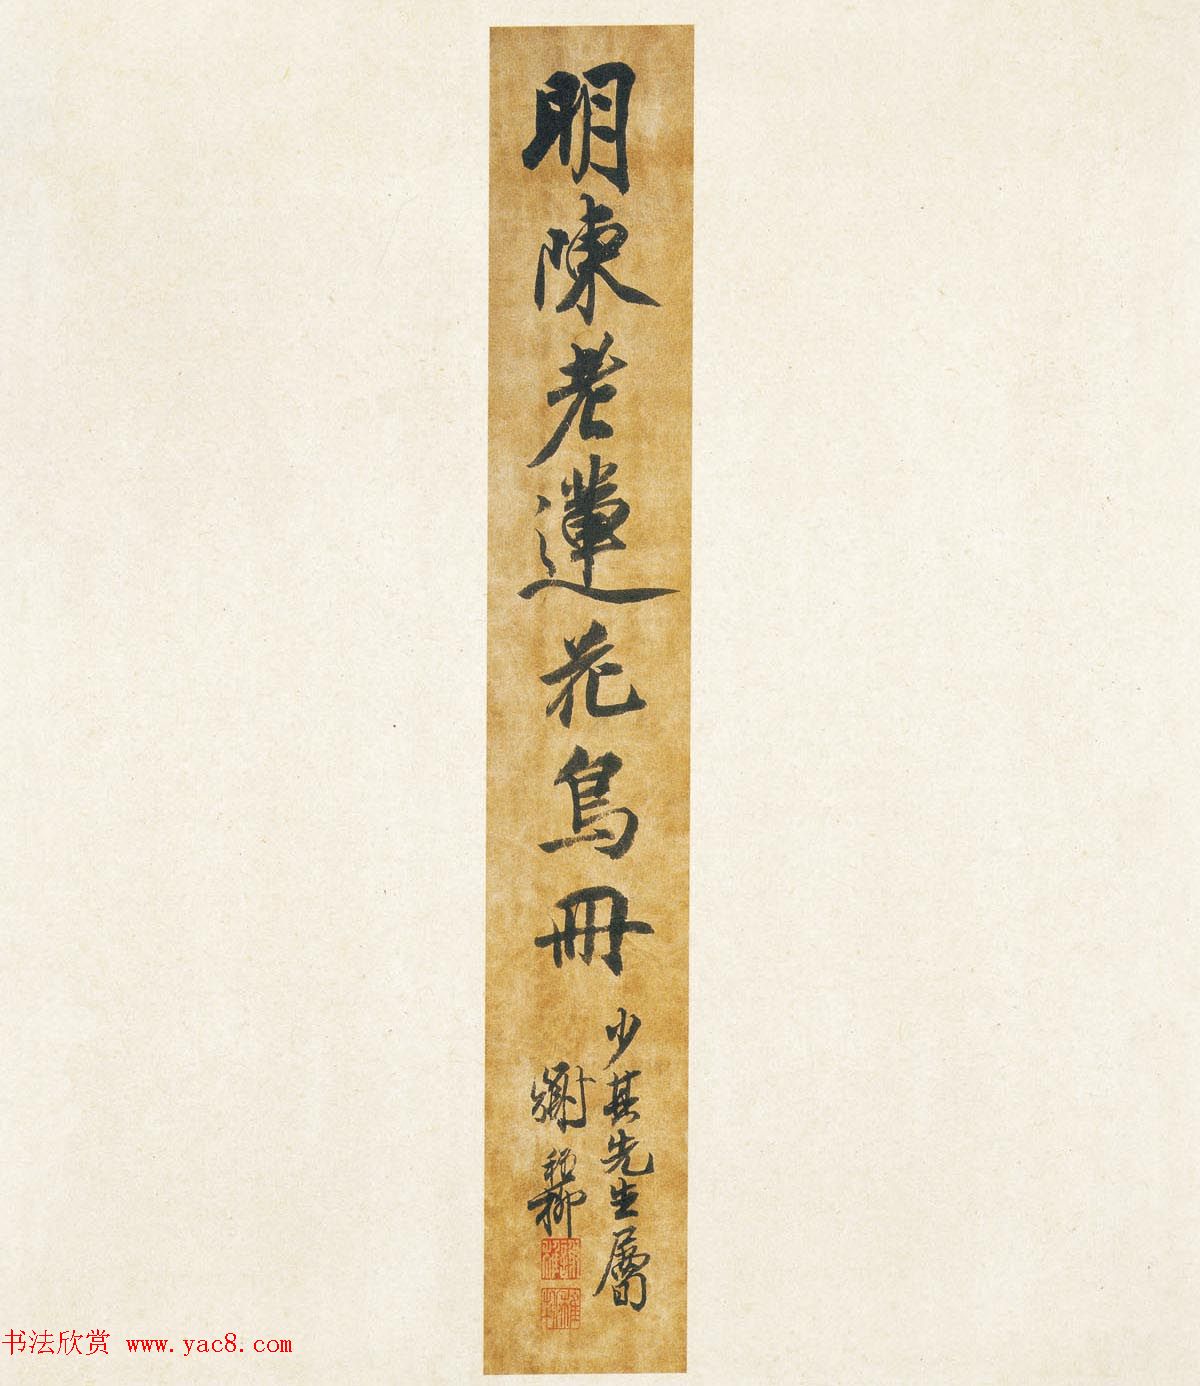 明陳老蓮花鳥冊
少其先生屬
謝稚柳
书法欣赏 www.yac8.com